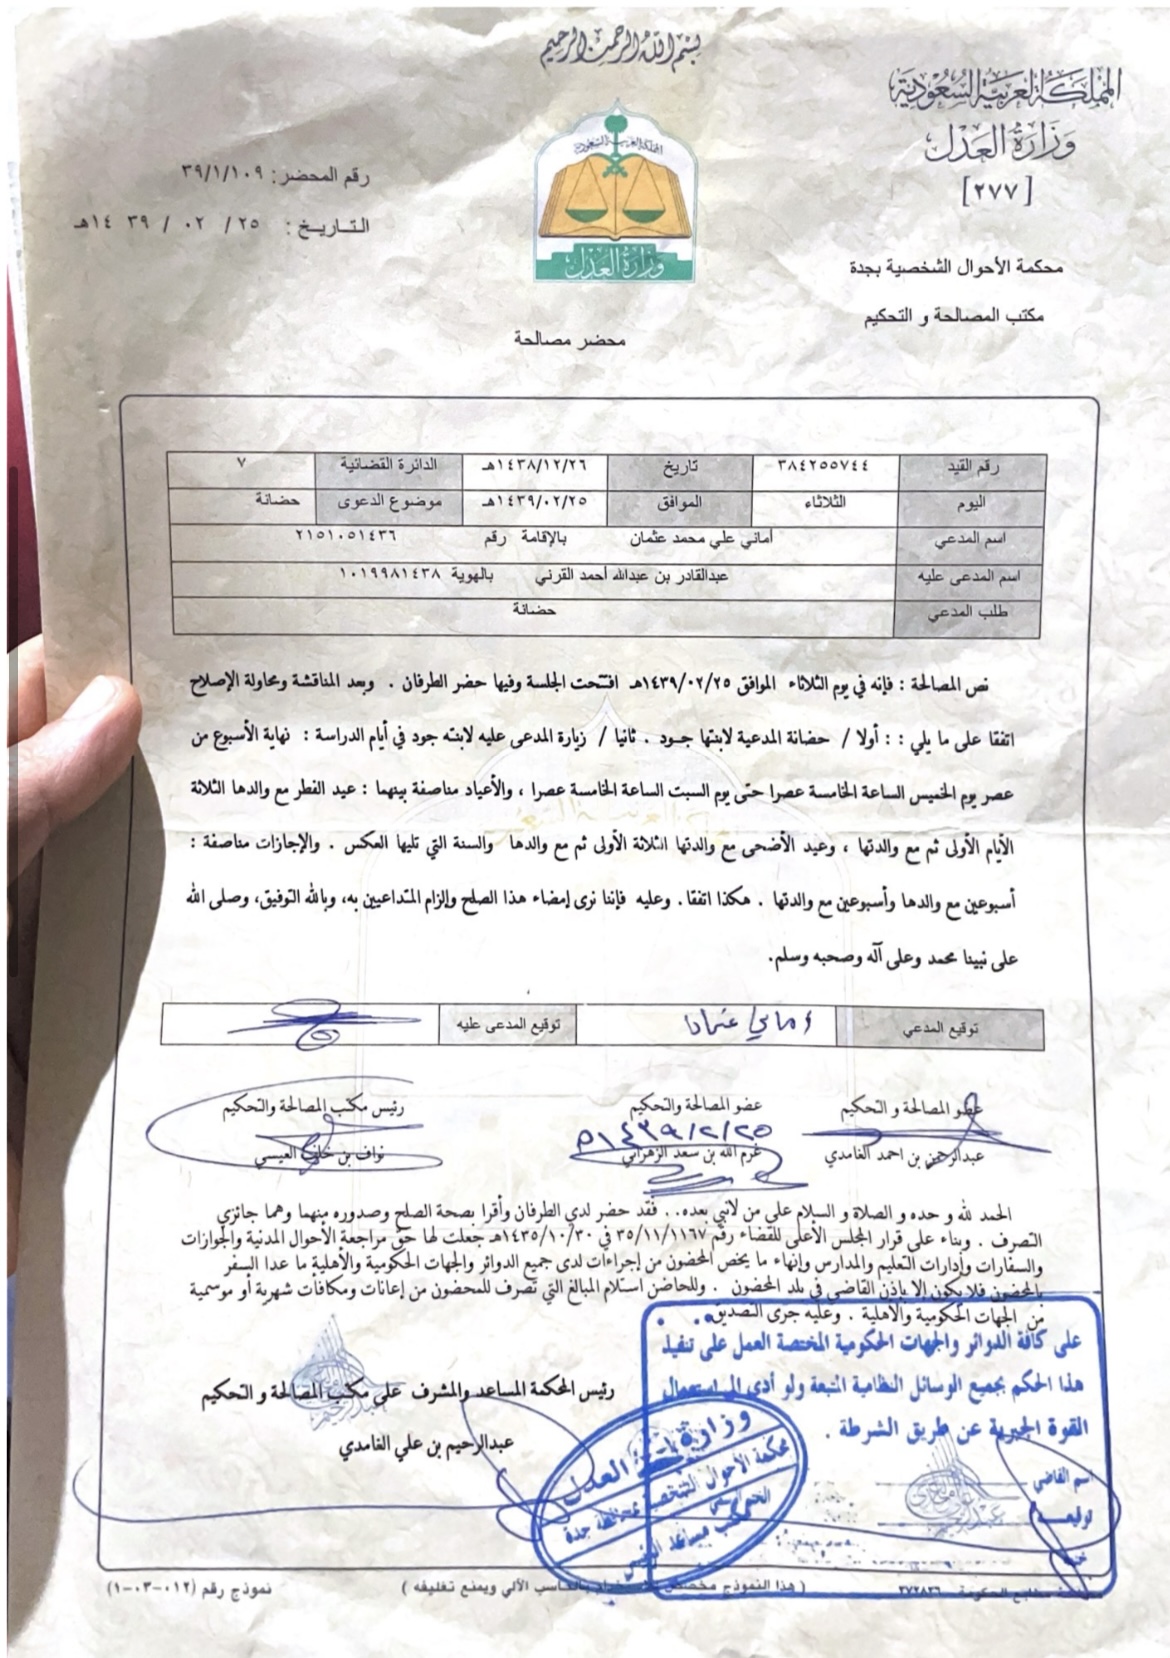 بسم الله الرحمن الرحيم
المملكة العربية السعودية
وزارة العدل
[٢٧٧]
محكمة الأحوال الشخصية بجدة
مكتب المصالحة و التحكيم
المملكة العربية السعودية
وزارة العدل
رقم المحضر: ٣٩/١/١٠٩
التـاريـخ: ٢٥ / ٠٢ / ٣٩ ١٤هـ
محضر مصالحة
رقم القيد ٣٨٤٢٥٥٧٤٤ تاريخ ١٤٣٨/١٢/٢٦هـ الدائرة القضائية ٧
اليوم الثلاثاء الموافق ١٤٣٩/٠٢/٢٥هـ موضوع الدعوى حضانة
اسم المدعي أماني علي محمد عثمان بالإقامة رقم ٢١٥١٠٥١٤٣٦
اسم المدعى عليه عبدالقادر بن عبدالله أحمد القرني بالهوية ١٠١٩٩٨١٤٣٨
طلب المدعي حضانة
نص المصالحة : فإنه في يوم الثلاثاء الموافق ١٤٣٩/٠٢/٢٥هـ افتتحت الجلسة وفيها حضر الطرفان . وبعد المناقشة ومحاولة الإصلاح
اتفقا على ما يلي : : أولا / حضانة المدعية لابنتها جـود . ثانيا / زيارة المدعى عليه لابنته جود في أيام الدراسة : نهاية الأسبوع من
عصر يوم الخميس الساعة الخامسة عصرا حتى يوم السبت الساعة الخامسة عصرا ، والأعياد مناصفة بينهما : عيد الفطر مع والدها الثلاثة
الأيام الأولى ثم مع والدتها ، وعيد الأضحى مع والدتها الثلاثة الأولى ثم مع والدها والسنة التي تليها العكس . والإجازات مناصفة :
أسبوعين مع والدها وأسبوعين مع والدتها . هكذا اتفقا . وعليه فإننا نرى إمضاء هذا الصلح وإلزام المتداعيين به، وبالله التوفيق، وصلى الله
على نبينا محمد وعلى آله وصحبه وسلم.
توقيع المدعي أماني عثمان توقيع المدعى عليه
عضو المصالحة و التحكيم عضو المصالحة والتحكيم رئيس مكتب المصالحة والتحكيم
١٤٣٩/٢/٢٥هـ
عبدالرحمن بن احمد الغامدي غرم الله بن سعد الزهراني نواف بن خلف العيسي
الحمد لله و حده و الصلاة و السلام علي من لانبي بعده.. فقد حضر لدي الطرفان وأقرا بصحة الصلح وصدوره منهما وهما جائزي
التصرف . وبناء على قرار المجلس الأعلى للقضاء رقم ٣٥/١١/١١٦٧ في ١٤٣٥/١٠/٣٠هـ جعلت لها حق مراجعة الأحوال المدنية والجوازات
والسفارات وإدارات التعليم والمدارس وإنهاء ما يخص المحضون من إجراءات لدى جميع الدوائر والجهات الحكومية والأهلية ما عدا السفر
بالمحضون فلا يكون إلا بإذن القاضي في بلد المحضون . وللحاضن استلام المبالغ التي تصرف للمحضون من إعانات ومكافات شهرية أو موسمية
من الجهات الحكومية والأهلية . وعليه جرى التصديق
على كافة الدوائر والجهات الحكومية المختصة العمل على تنفيذ
هذا الحكم بجميع الوسائل النظامية المتبعة ولو أدى الى استعمال
القوة الجبرية عن طريق الشرطة .
اسم القاضي
توقيعـه
ختمه
رئيس المحكمة المساعد والمشرف على مكتب المصالحة و التحكيم
عبدالرحيم بن علي الغامدي
وزارة العدل
محكمة الأحوال الشخصية بمحافظة جدة
مكتب مساعد الرئيس
٣٧٢٨٣٦
( هذا النموذج مخصص للاستخدام بالحاسب الآلي ويمنع تغليفه )
نموذج رقم (٠١٢-٠٣-١)